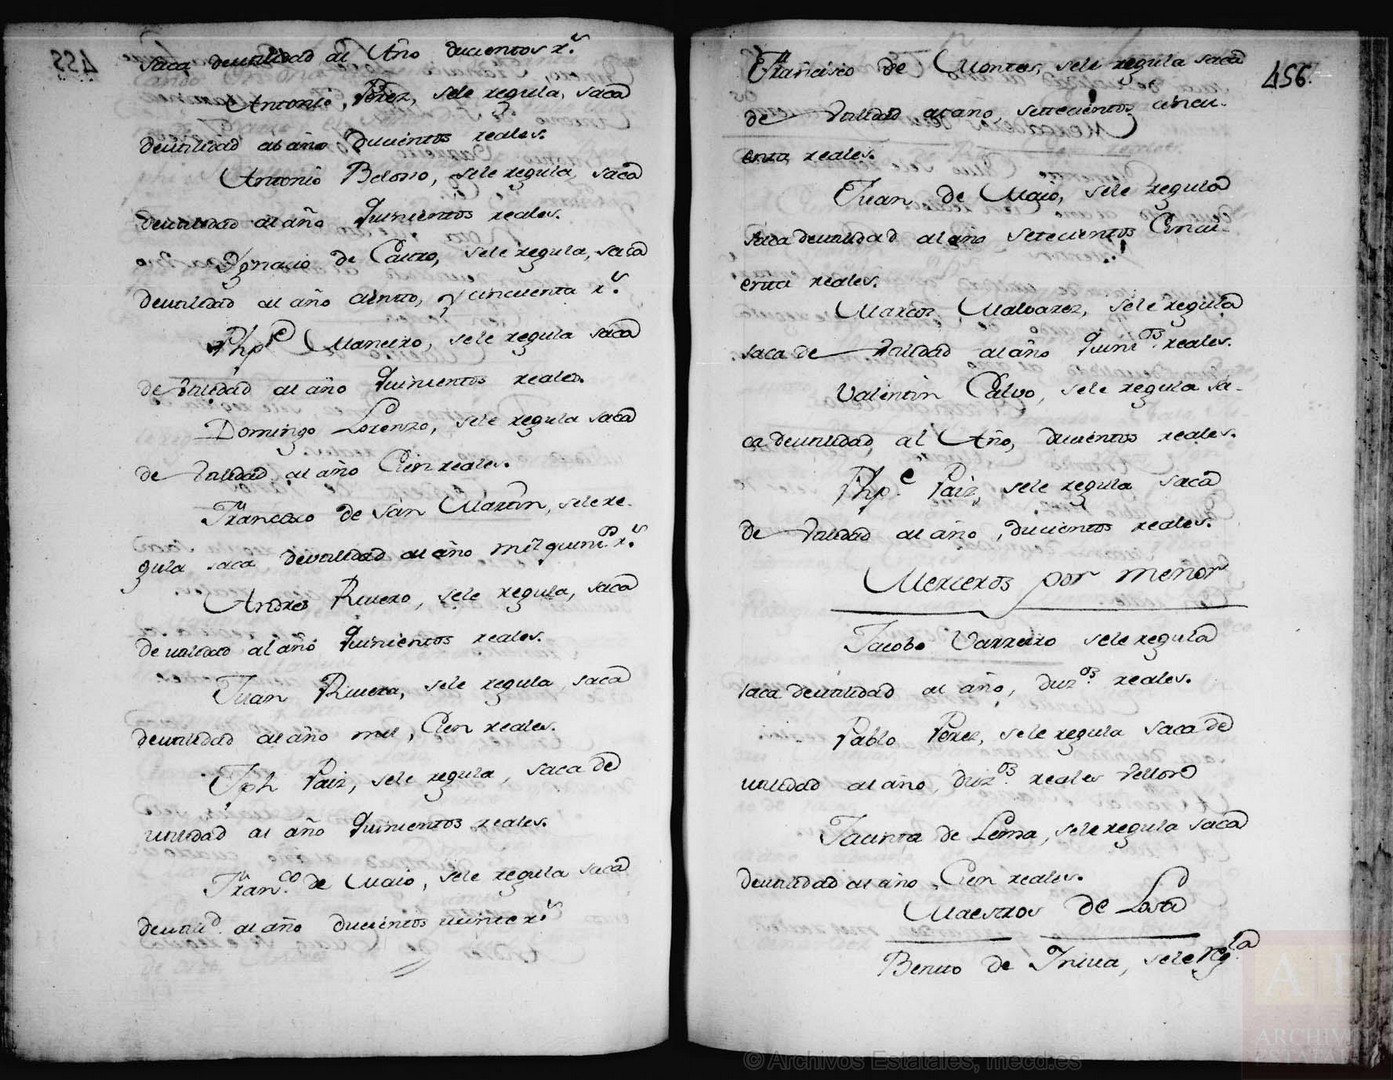 saca de utilidad al Año ducientos r.s
Antonio Perez, sele regula, saca
de utilidad al año ducientos reales.
Antonio Beloso, sele regula, saca
de utilidad al año Quinientos reales.
Ygnacio de Castro, sele regula, saca
de utilidad al año ciento, y cinquenta r.s
Phpe Maneiro, sele regula saca
de utilidad al año Quinientos reales.
Domingo Lorenzo, sele regula saca
de utilidad al año Cien reales.
Francisco de San Martin, sele re-
gula saca de utilidad al año mil quin.os r.s
Andres Rivero, sele regula, saca
de utilidad al año Quinientos reales.
Juan Rivera, sele regula saca
de utilidad al año mil, Cien reales.
Jph Paiz, sele regula, saca de
utilidad al año Quinientos reales.
Fran.co de Maio, sele regula saca
de utilid.d al año ducientos veinte r.s
456.
Francisco de Montes, sele regula saca
de utilidad al año, setecientos cincu-
enta reales.
Juan de Maio, sele regula
saca de utilidad al año setecientos Cincu-
enta reales.
Marcos Malvarez, sele regula
saca de utilidad al año Quin.os reales.
Valentin Calvo, sele regula sa-
ca de utilidad, al Año, ducientos reales.
Phpe Paiz, sele regula saca
de utilidad al año, ducientos reales.
Merceros por menor
Jacobo Varreiro sele regula
saca de utilidad al año, duz.os reales.
Pablo Perez, sele regula saca de
utilidad al año duz.os reales vellon
Jacinta de Lema, sele regula saca
de utilidad al año, Cien reales.
Maestros de Losa
Benito de Triua, sele reg.la
© Archivos Estatales, mecd.es